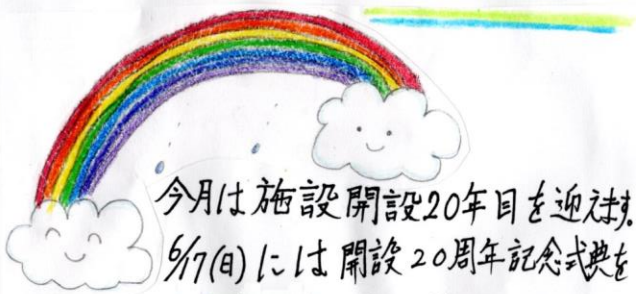 今月は施設開設20年目を迎えます。
6/17(日)には開設20周年記念式典を